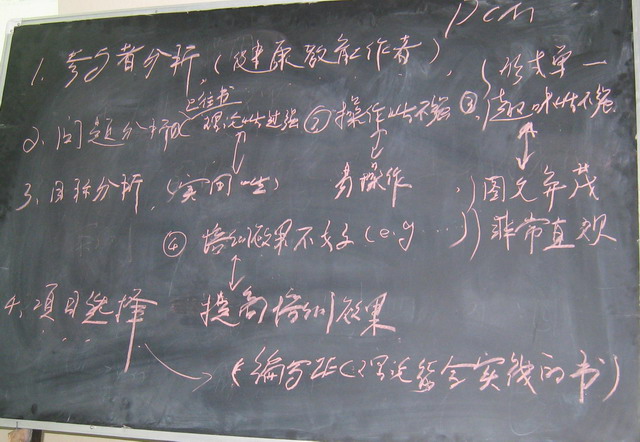 PCM
1. 参与者分析 (健康教育工作者)
2. 问题分析 ( ①往书理论性过强 ② 操作性不强 ③ 形式单一 趣味性不强
3. 目标分析 (实用性) 易操作 图文并茂
④ 培训效果不太好 (e.g ...) 非常直观
4. 项目选择 提高培训效果
编写 (理论结合实践的书)